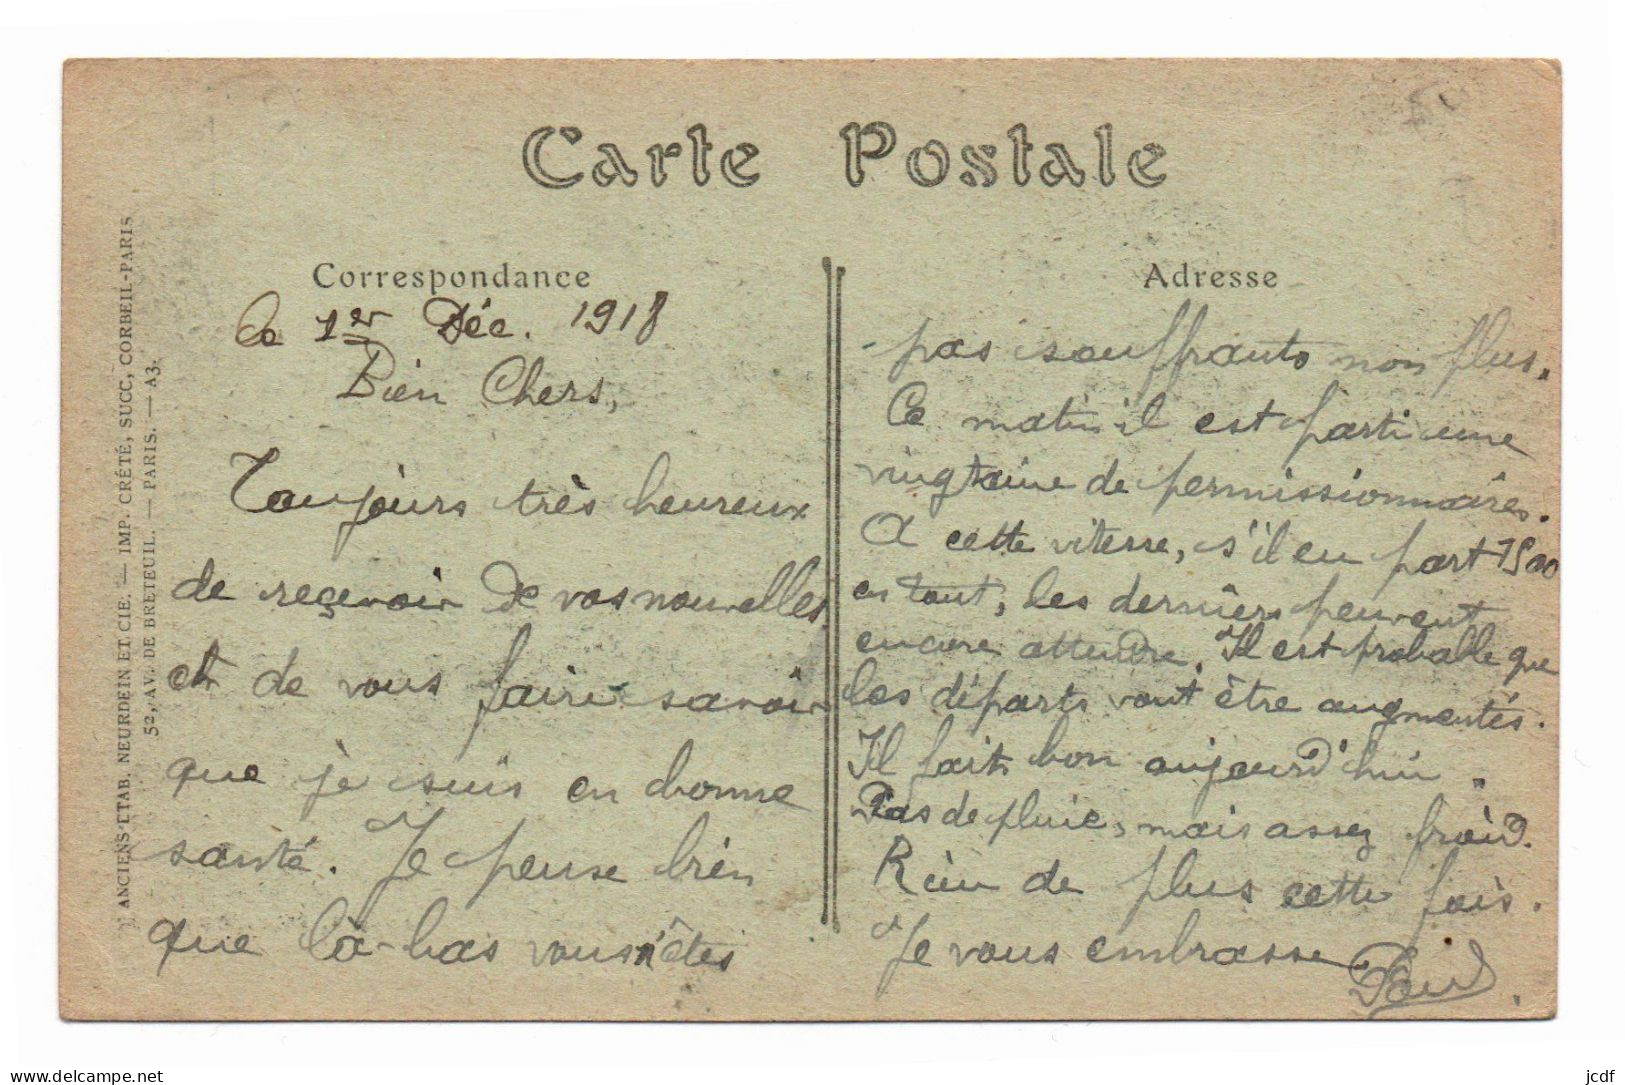 Carte Postale
Correspondance
Le 1er Déc. 1918
Bien Chers,
Toujours très heureux
de reçevoir de vos nouvelles
et de vous faire savoir
que je suis en bonne
santé. Je pense bien
que là-bas vous n'êtes
Adresse
pas souffrants non plus.
Ce matin il est parti une
vingtaine de permissionnaires.
A cette vitesse, s'il en part 1500
en tout, les derniers peuvent
encore attendre. Il est probable que
les départs vont être augmentés.
Il fait bon aujourd'hui.
Pas de pluie, mais assez froid.
Rien de plus cette fois.
Je vous embrasse
ANCIENS ETAB. NEURDEIN ET CIE. — IMP. CRÉTÉ, SUCC, CORBEIL-PARIS
52, AV. DE BRETEUIL. — PARIS. — A3.
www.delcampe.net
jcdf